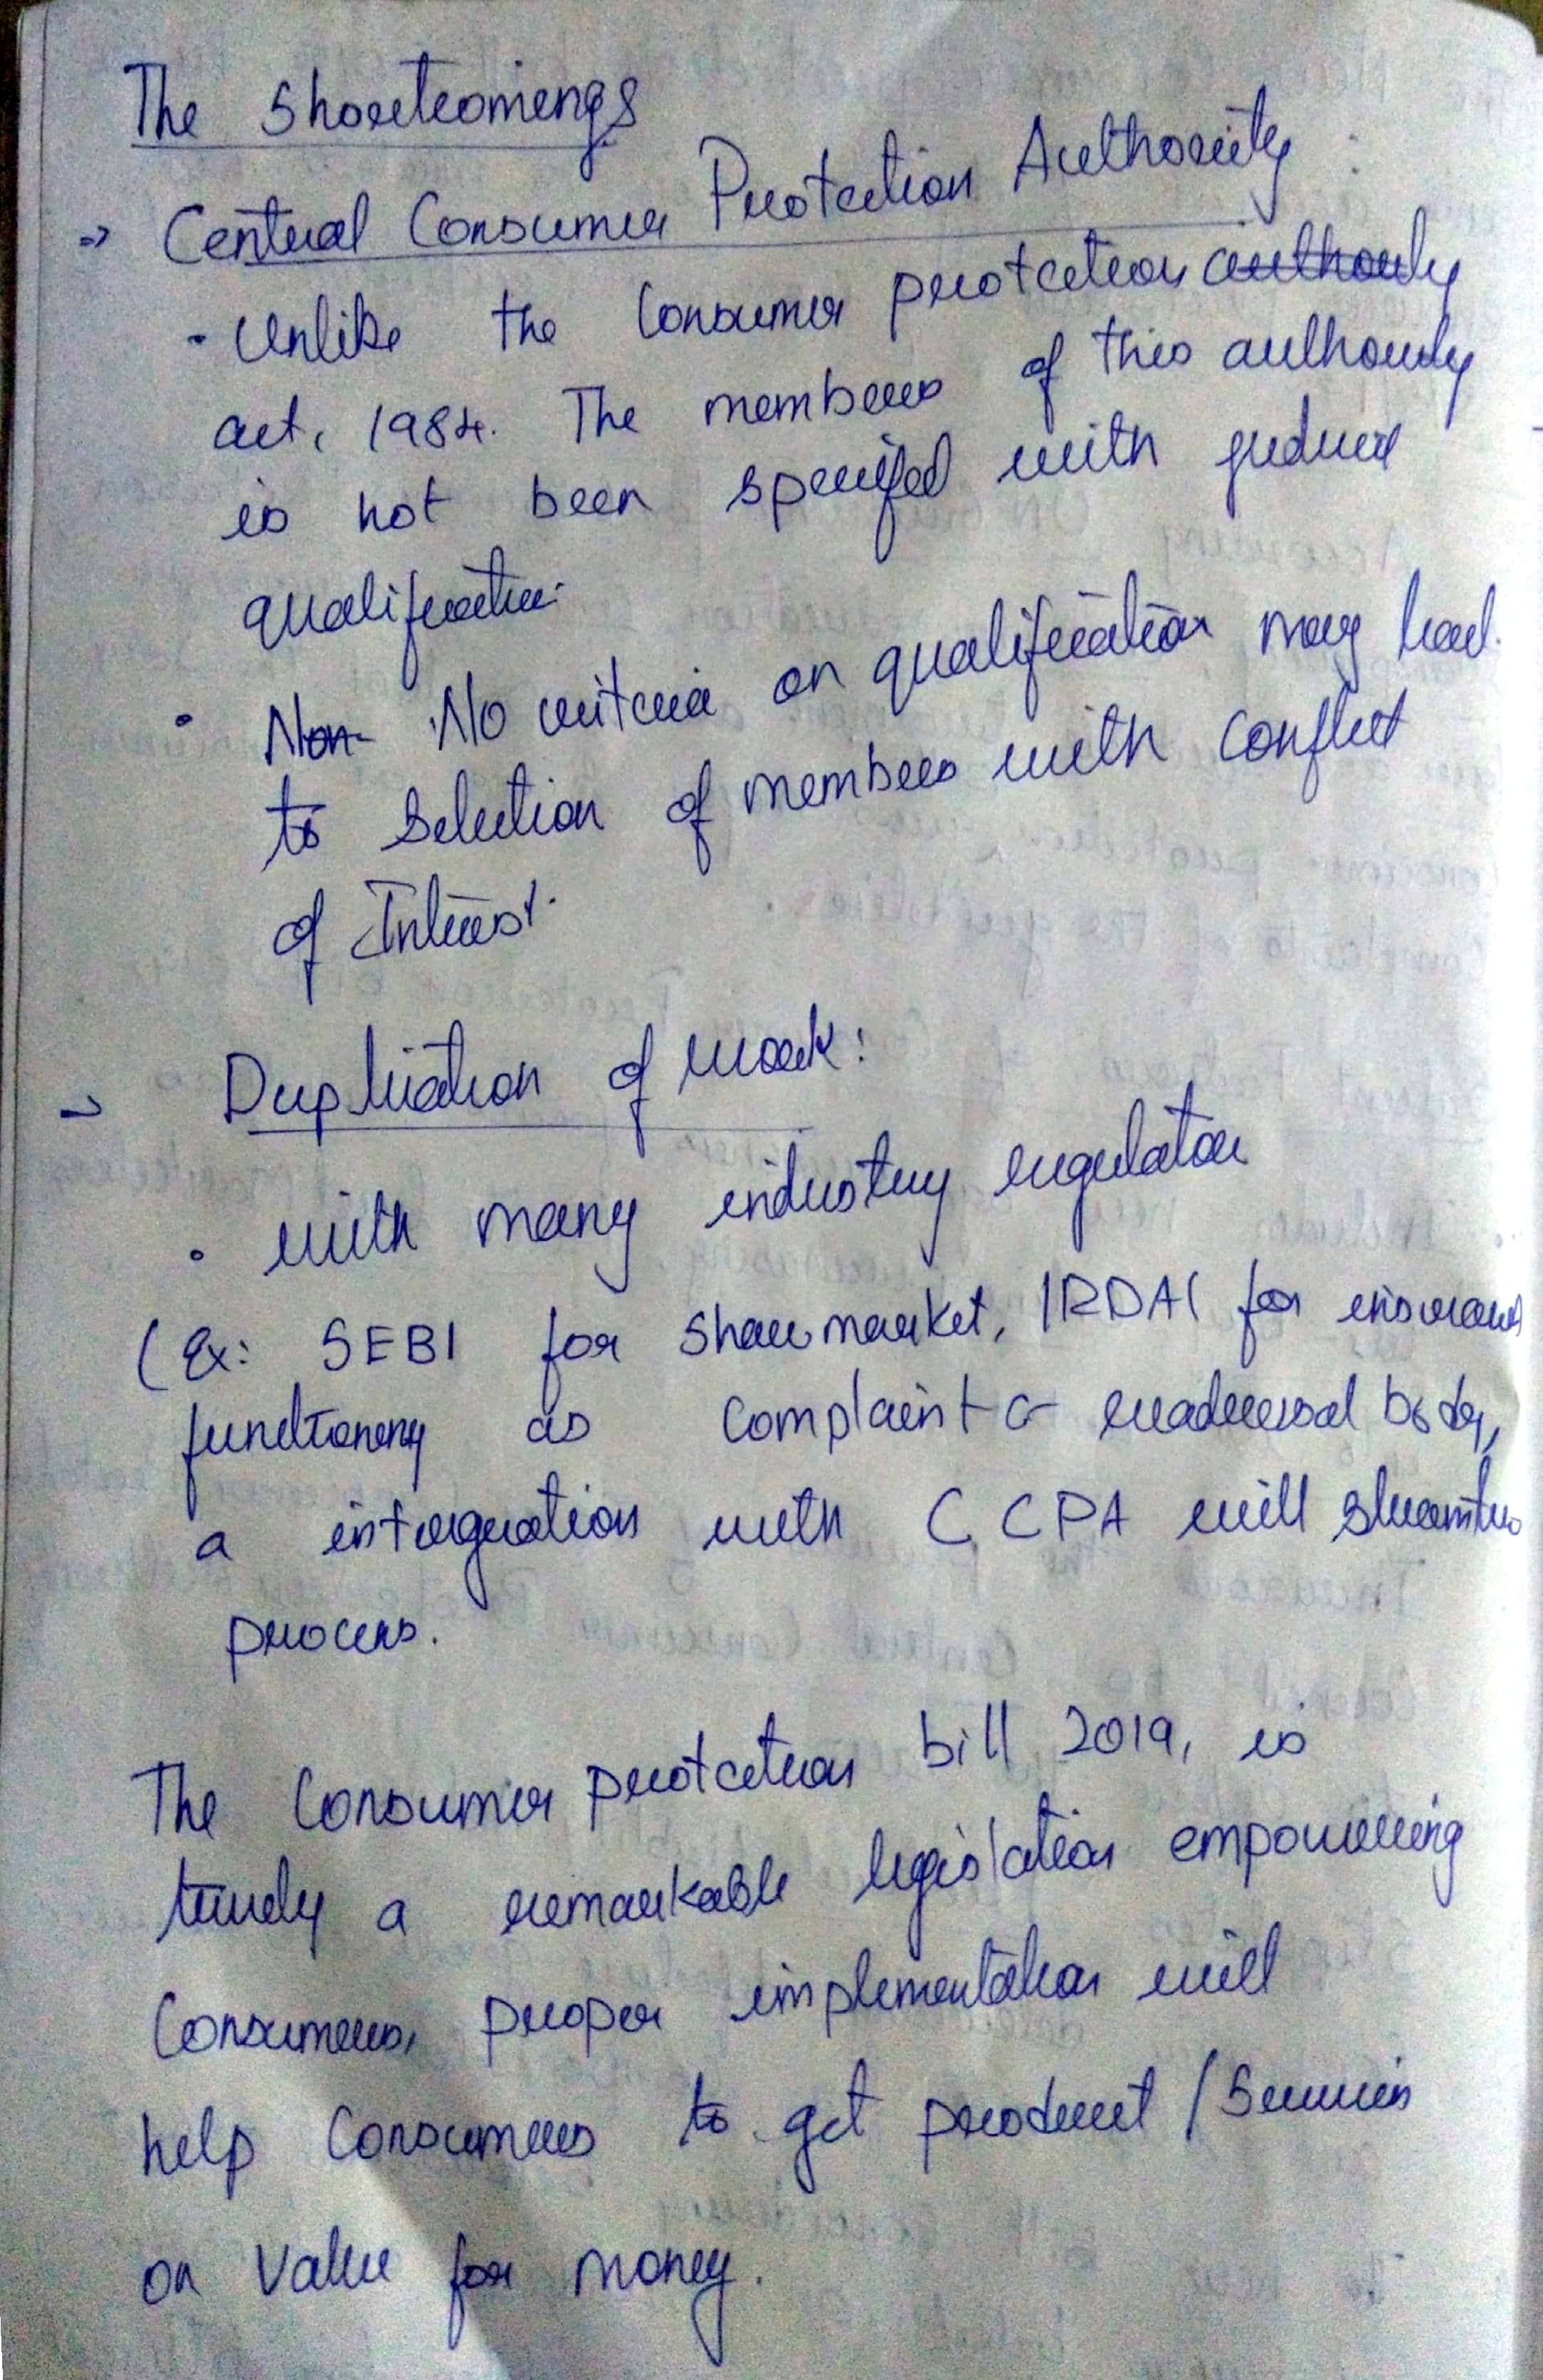 The Shortcomings
⇒ Central Consumer Protection Authority :
- Unlike the Consumer protection authority
act, 1984. The members of this authority
is not been specified with
qualification.
• Non- No criteria on qualification may lead
to selection of members with conflict
of Interest.
→ Duplication of work:
• with many industry regulator
(Ex: SEBI for Share market, IRDAI for insurance
functioning as complaint & redressal body,
a intergration with CCPA will
process.
The Consumer protection bill 2019, is
truely a remarkable legislation empowering
Consumers, proper implementation will
help Consumers to get product / Services
on value for money.